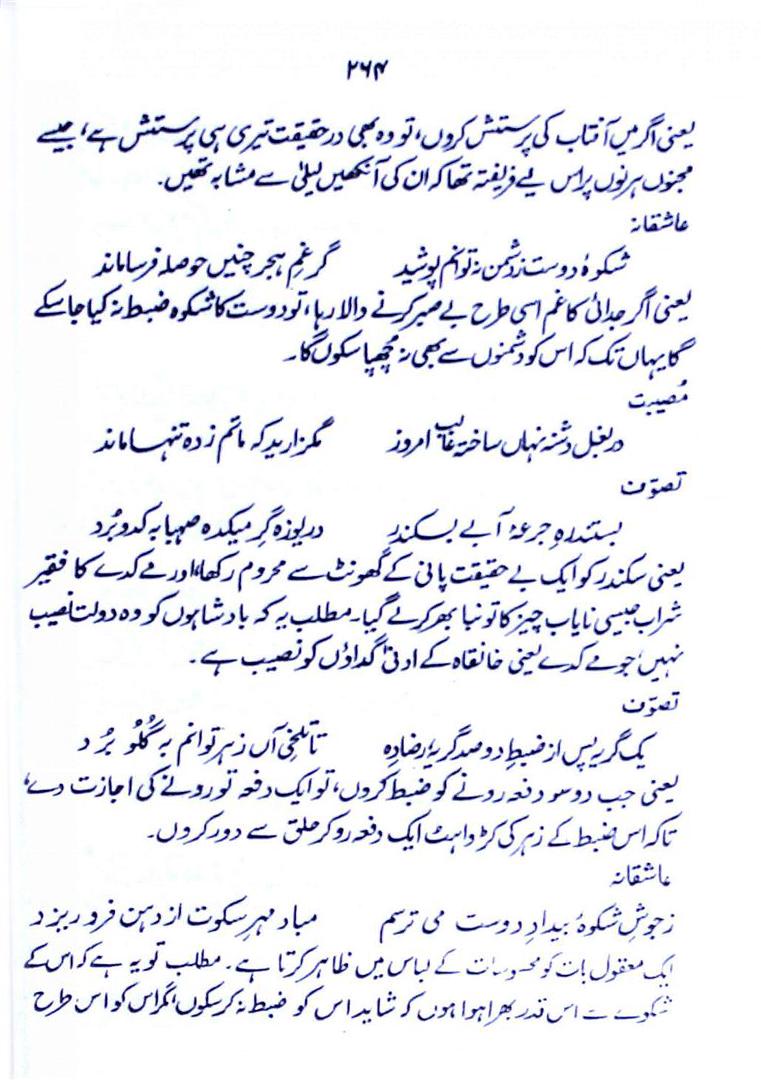 ۲۶۴
یعنی اگر میں آفتاب کی پرستش کروں، تو وہ بھی درحقیقت تیری ہی پرستش ہے، جیسے
مجنوں ہرنوں پر اس لیے فریفتہ تھا کہ ان کی آنکھیں لیلیٰ سے مشابہ تھیں۔
عاشقانہ
شکوۂ دوست ز دشمن نہ توانم پوشید گر غمِ ہجر چنیں حوصلہ فرسا ماند
یعنی اگر جدائی کا غم اسی طرح بے صبر کرنے والا رہا، تو دوست کا شکوہ ضبط نہ کیا جا سکے
گا یہاں تک کہ اس کو دشمنوں سے بھی نہ چھپا سکوں گا۔
مُصیبت
در بغل دشنہ نہاں ساختہ غالب امروز مگزارید کہ ماتم زدہ تنہا ماند
تصوّف
بستند رہِ جرعۂ آبے بسکندر دریوزہ گرِ میکدہ صہبا بہ کدو بُرد
یعنی سکندر کو ایک بے حقیقت پانی کے گھونٹ سے محروم رکھا، اور مے کدے کا فقیر
شراب جیسی نایاب چیز کا تونبا بھر کر لے گیا۔ مطلب یہ کہ بادشاہوں کو وہ دولت نصیب
نہیں، جو مے کدے یعنی خانقاہ کے ادنیٰ گداؤں کو نصیب ہے۔
تصوّف
یک گریہ پس از ضبطِ دو صد گریہ رضا دہ تا تلخیِ آں زہر توانم بہ گُلُو بُرد
یعنی جب دو سو دفعہ رونے کو ضبط کروں، تو ایک دفعہ تو رونے کی اجازت دے،
تاکہ اس ضبط کے زہر کی کڑواہٹ ایک دفعہ رو کر حلق سے دور کروں۔
عاشقانہ
ز جوشِ شکوۂ بیدادِ دوست می ترسم مباد مہرِ سکوت از دہن فرو ریزد
ایک معقول بات کو محسوسات کے لباس میں ظاہر کرتا ہے۔ مطلب تو یہ ہے کہ اس کے
شکوے سے اس قدر بھرا ہوا ہوں کہ شاید اس کو ضبط نہ کر سکوں، مگر اس کو اس طرح